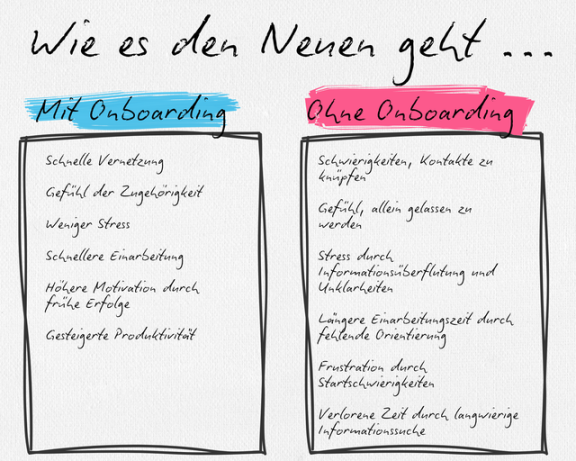 Wie es den Neuen geht ...
Mit Onboarding
Schnelle Vernetzung
Gefühl der Zugehörigkeit
Weniger Stress
Schnellere Einarbeitung
Höhere Motivation durch
frühe Erfolge
Gesteigerte Produktivität
Ohne Onboarding
Schwierigkeiten, Kontakte zu
knüpfen
Gefühl, allein gelassen zu
werden
Stress durch
Informationsüberflutung und
Unklarheiten
Längere Einarbeitungszeit durch
fehlende Orientierung
Frustration durch
Startschwierigkeiten
Verlorene Zeit durch langwierige
Informationssuche